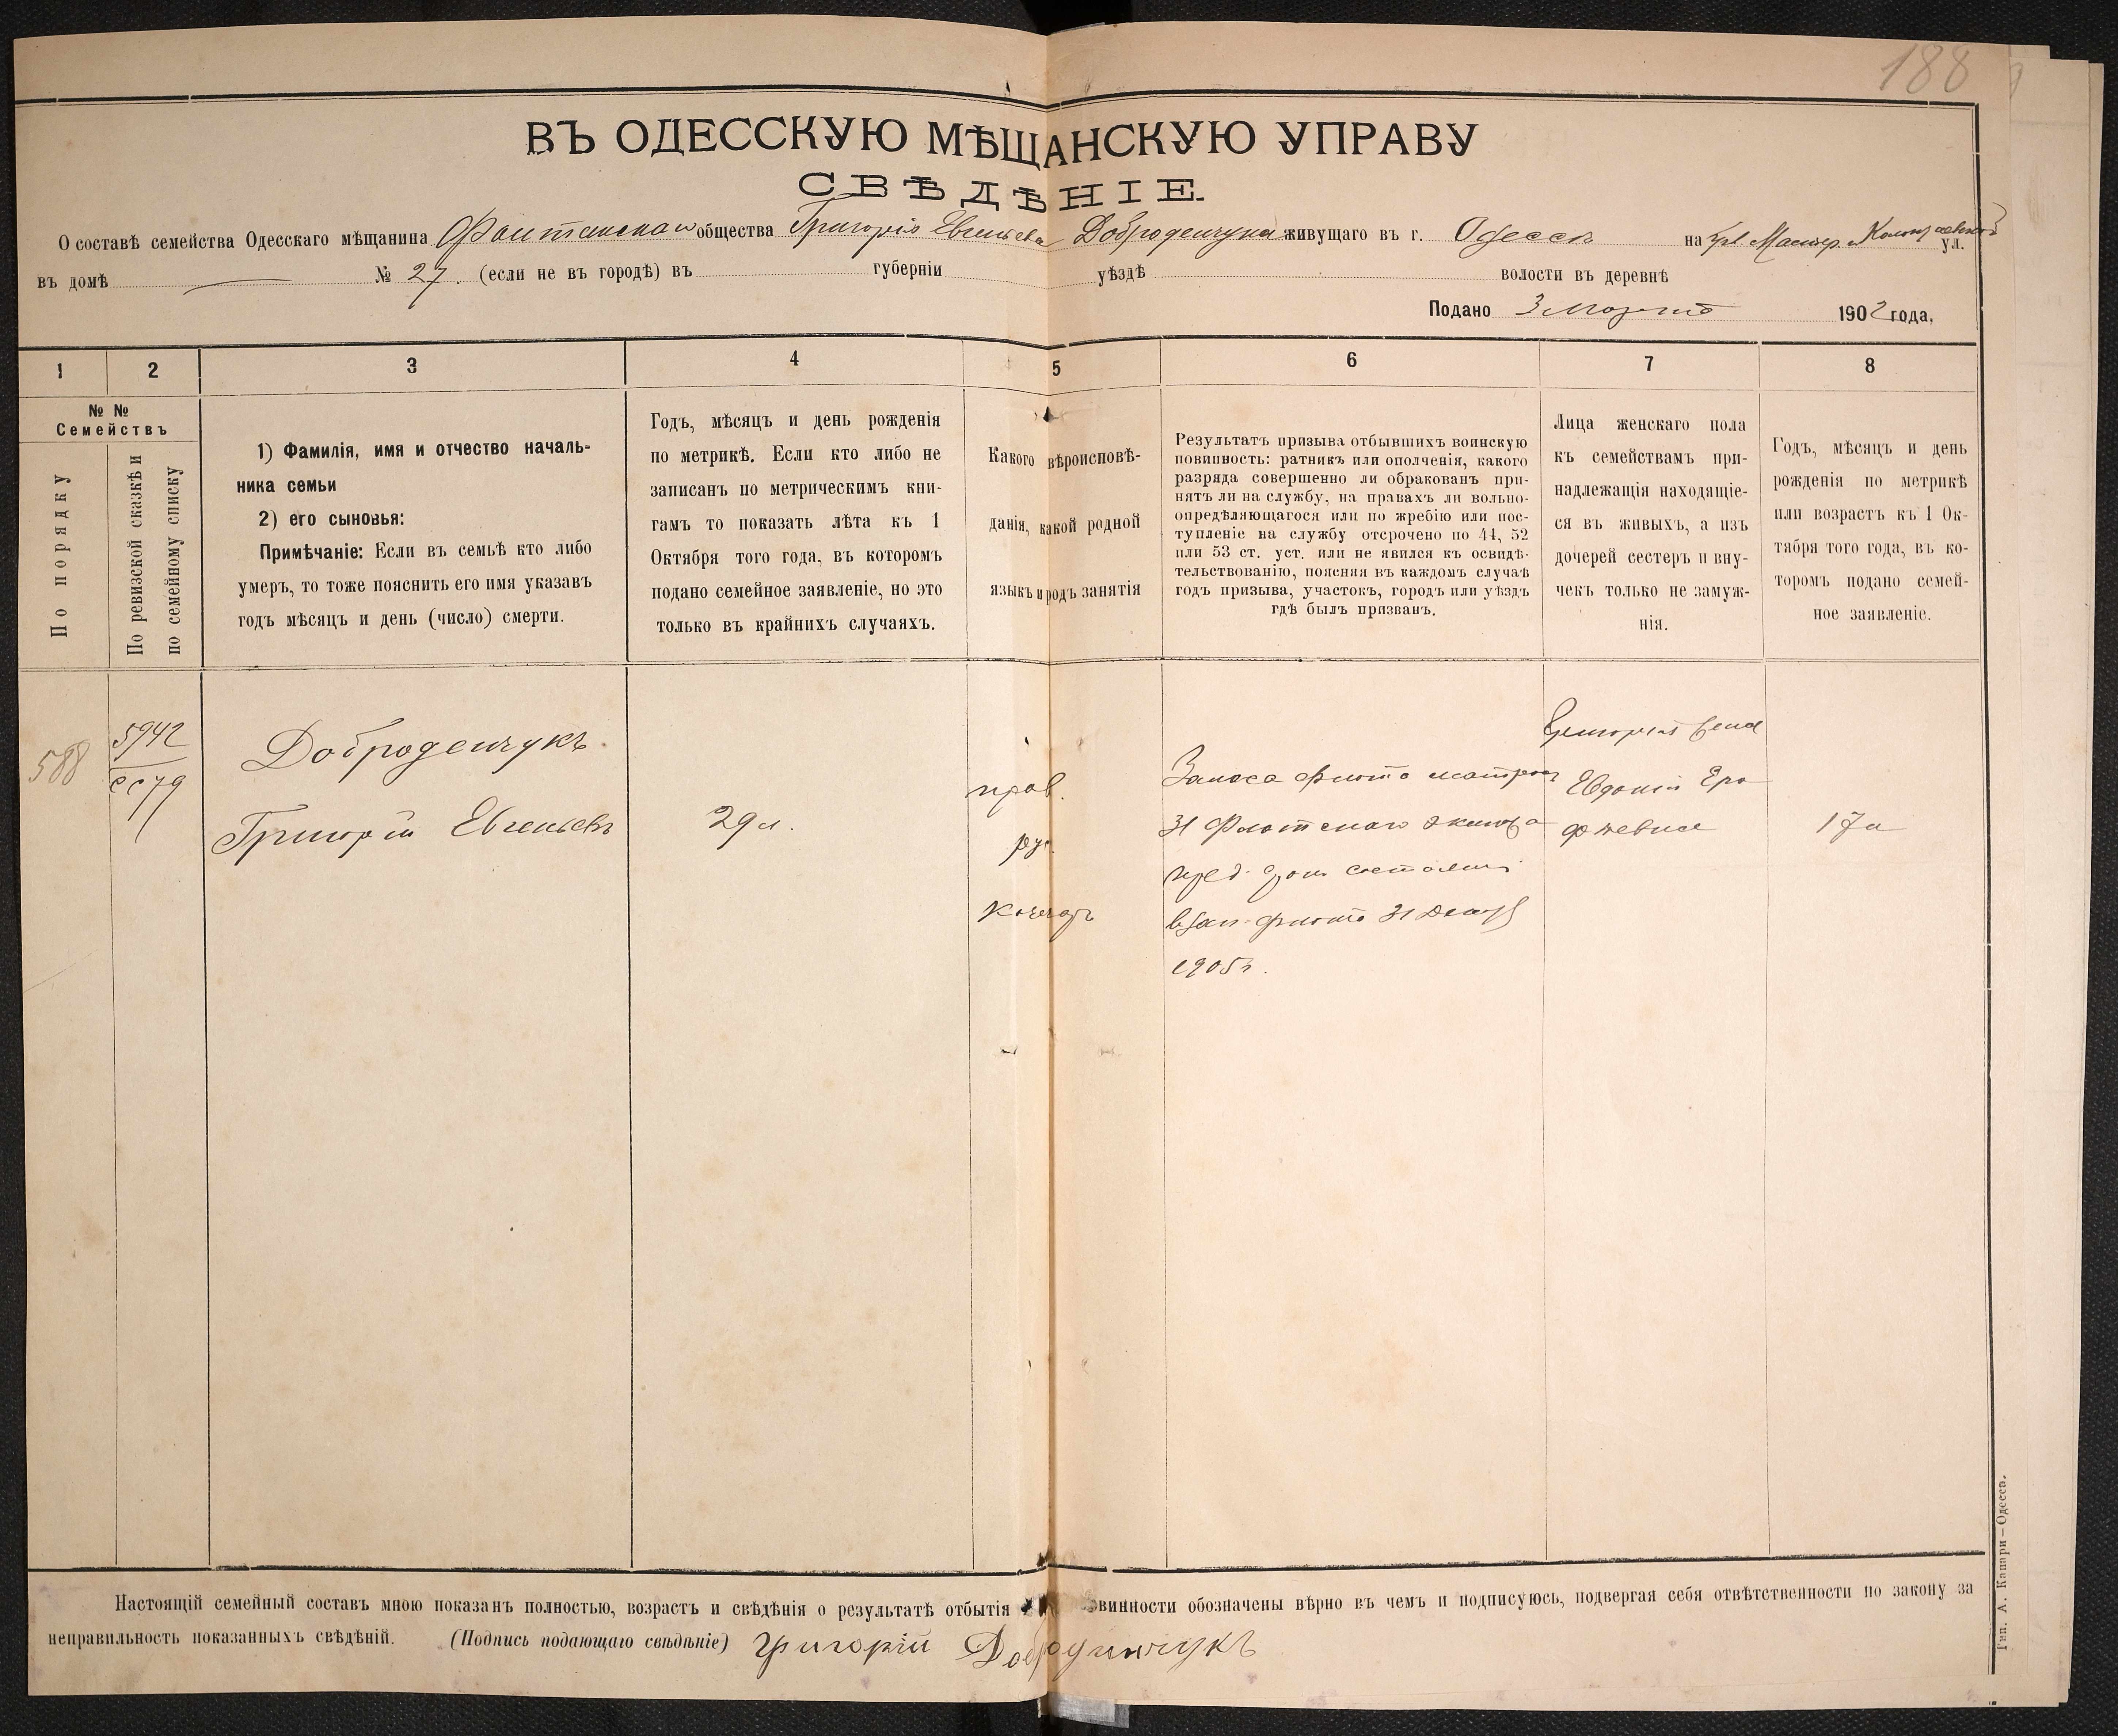 188
ВЪ ОДЕССКУЮ МѢЩАНСКУЮ УПРАВУ
СВѢДѢНІЕ.
О составѣ семейства Одесскаго мѣщанина Фонтанскаго общества Григорія Евгеньева Доброденчука живущаго въ г. Одессѣ на ул.
въ домѣ — № 27. (если не въ городѣ) въ губерніи уѣздѣ волости въ деревнѣ
Подано 3 Марта 1902 года.
1 2 3 4 5 6 7 8
№ №
Семействъ
По порядку
По ревизской сказкѣ и
по семейному списку
1) Фамилія, имя и отчество началь-
ника семьи
2) его сыновья:
Примѣчаніе: Если въ семьѣ кто либо
умеръ, то тоже пояснить его имя указавъ
годъ мѣсяцъ и день (число) смерти.
Годъ, мѣсяцъ и день рожденія
по метрикѣ. Если кто либо не
записанъ по метрическимъ кни-
гамъ то показать лѣта къ 1
Октября того года, въ которомъ
подано семейное заявленіе, но это
только въ крайнихъ случаяхъ.
Какого вѣроисповѣ-
данія, какой родной
языкъ и родъ занятія
Результатъ призыва отбывшихъ воинскую
повинность: ратникъ или ополченія, какого
разряда совершенно ли обракованъ при-
нятъ ли на службу, на правахъ ли вольно-
опредѣляющагося или по жребію или пос-
тупленіе на службу отсрочено по 44, 52
или 53 ст. уст. или не явился къ освидѣ-
тельствованію, поясняя въ каждомъ случаѣ
годъ призыва, участокъ, городъ или уѣздъ
гдѣ былъ призванъ.
Лица женскаго пола
къ семействамъ при-
надлежащія находящіе-
ся въ живыхъ, а изъ
дочерей сестеръ и вну-
чекъ только не замуж-
нія.
Годъ, мѣсяцъ и день
рожденія по метрикѣ
или возрастъ къ 1 Ок-
тября того года, въ ко-
торомъ подано семей-
ное заявленіе.
588
5942
Доброденчукъ
Григорій Евгеньевъ
29 л.
прав.
рус.
Запаса флота матрос
31 Флотскаго экипажа
пред. состоянія
в зап. флота 31 Декаб
1905 г.
Григорія жена
Евдокія Еро
фѣевна
17 л
Настоящій семейный составъ мною показанъ полностью, возрастъ и свѣдѣнія о результатѣ отбытія винности обозначены вѣрно въ чемъ и подписуюсь, подвергая себя отвѣтственности по закону за
неправильность показанныхъ свѣдѣній. (Подпись подающаго свѣдѣніе) Григорій Добродинчукъ
Тип. А. Капари—Одесса.